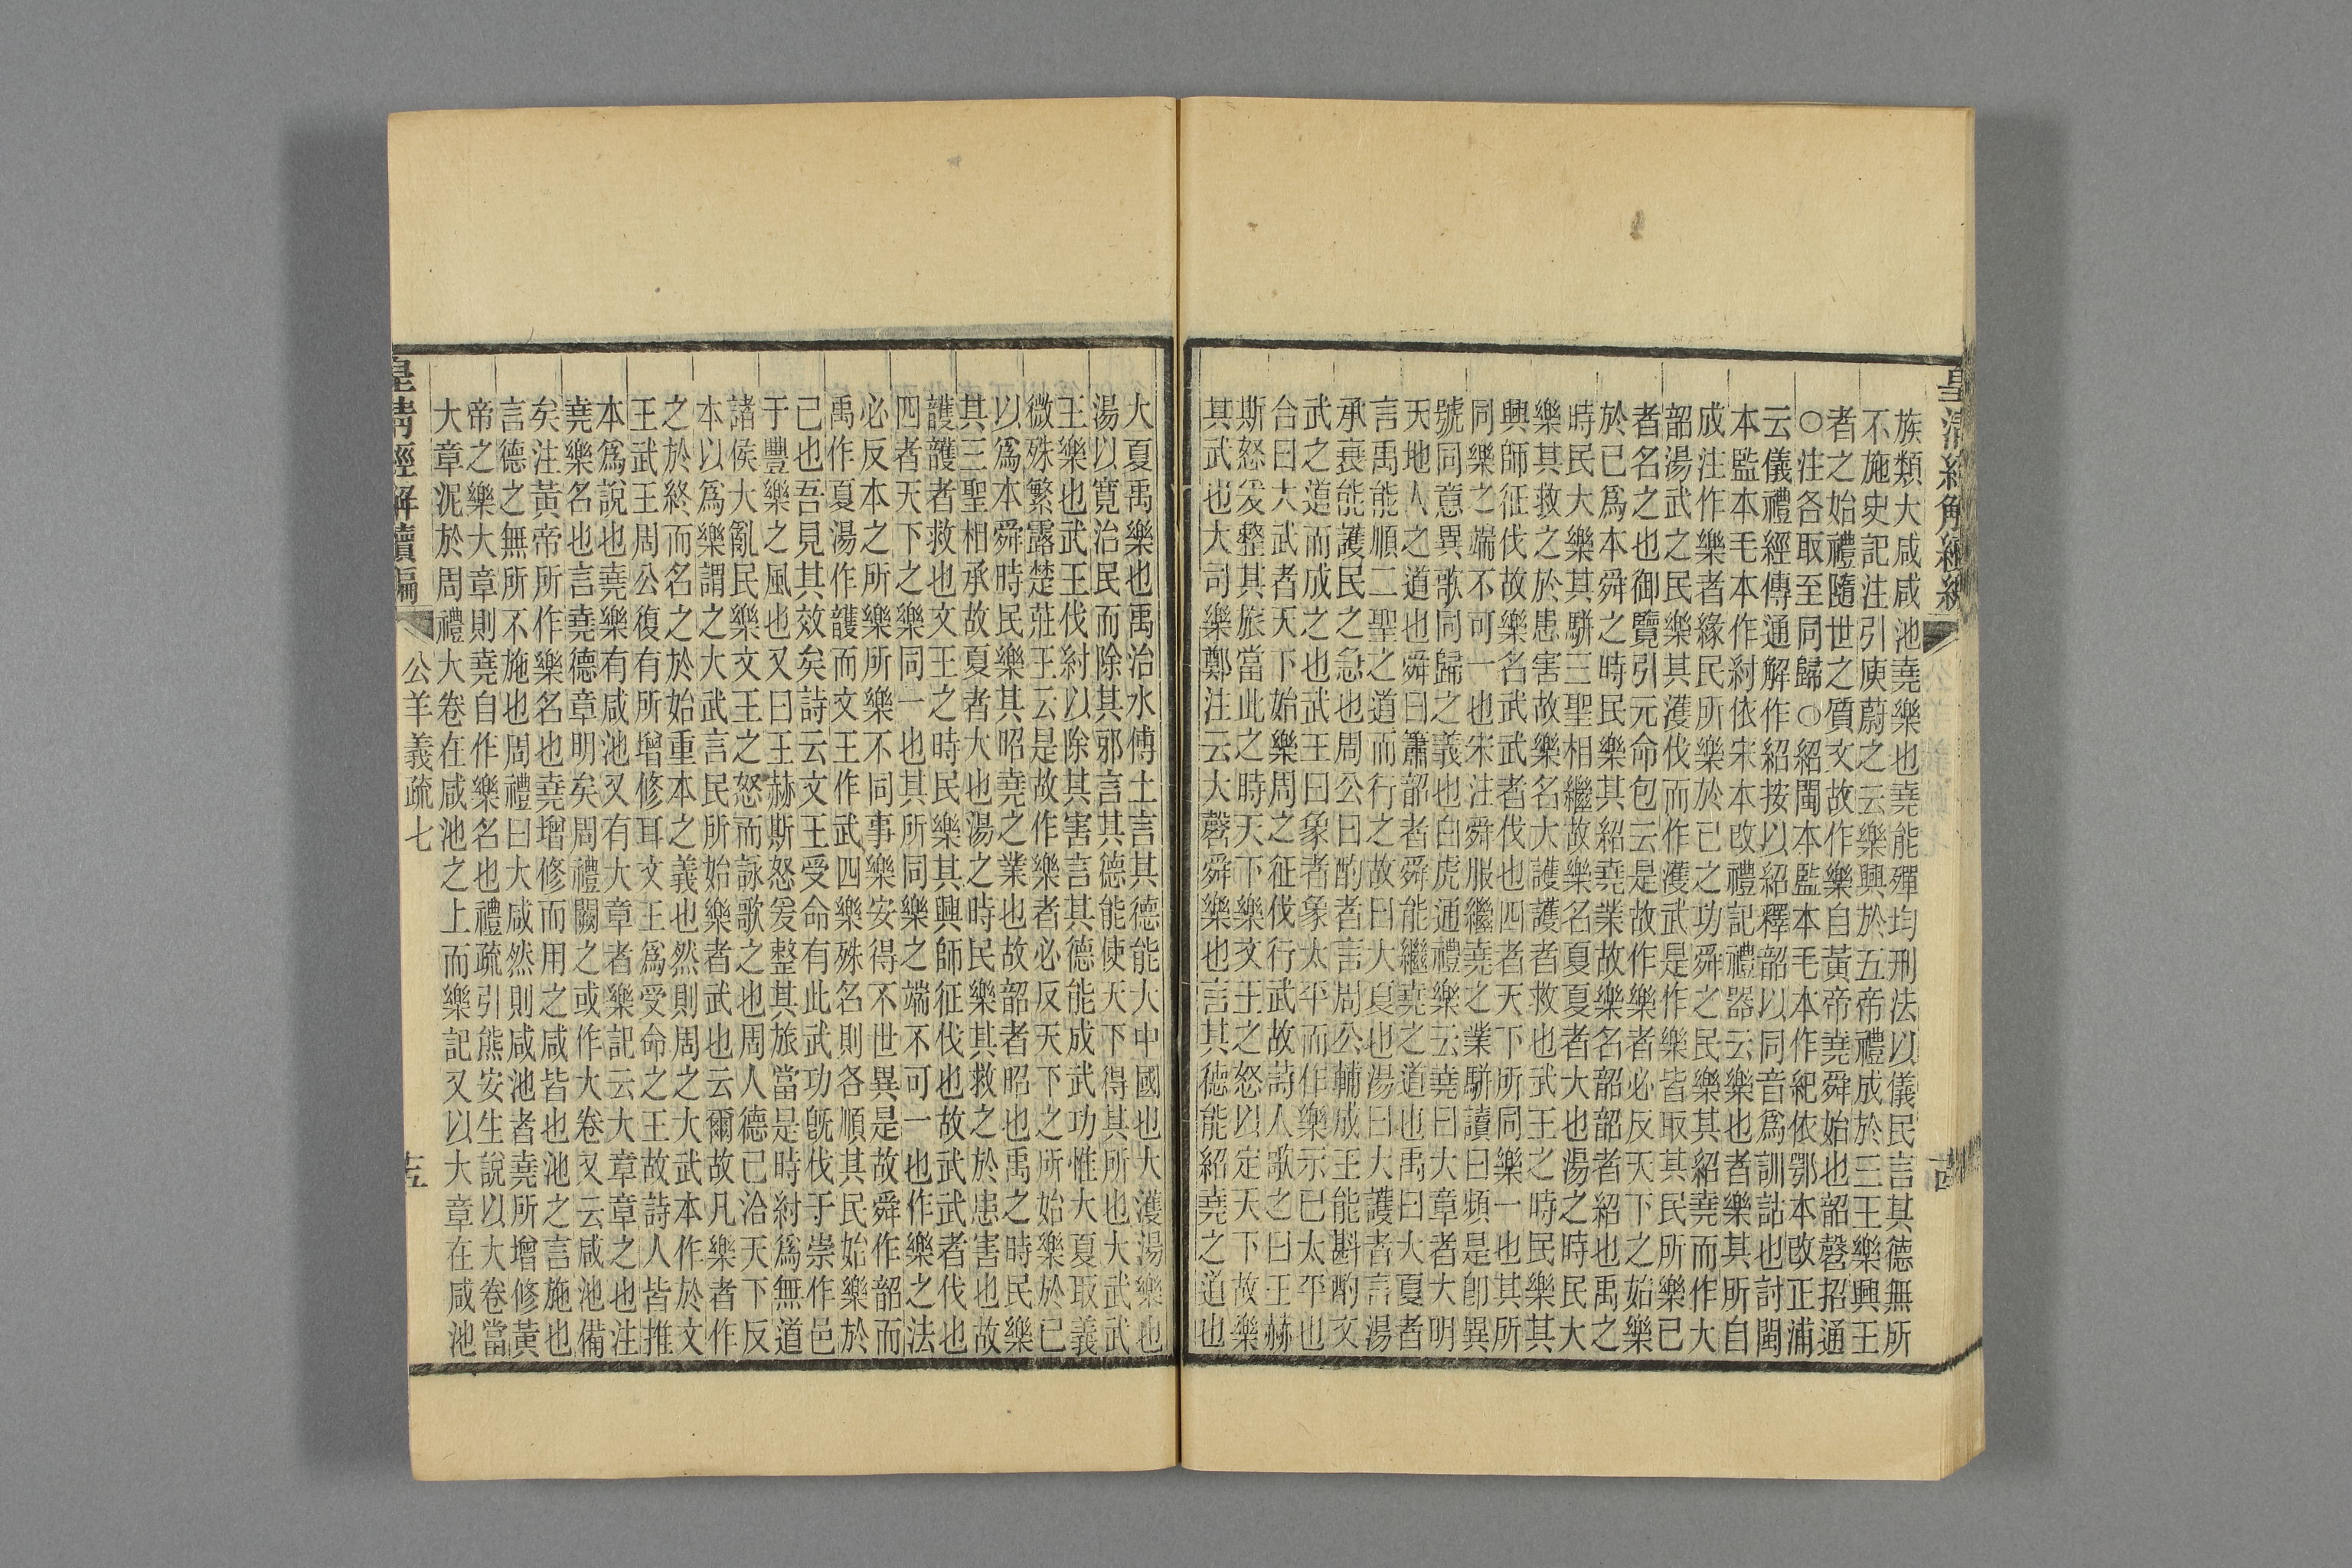 皇清經解續編
族類大咸咸池堯樂也堯能殫均刑法以儀民言其德無所
不施史記注引庾蔚之云樂興於五帝禮成於三王樂興王
者之始禮隨世之質文故作樂自黃帝堯舜始也韶磬招通
○注各取至同歸○紹閩本監本毛本作紀依鄂本改正浦
云儀禮經傳通解作紹按以紹釋韶以同音爲訓詁也討閩
本監本毛本作紂依宋本改禮記禮器云樂也者樂其所自
成注作樂者緣民所樂於已之功舜之民樂其紹堯而作大
韶湯武之民樂其濩伐而作濩武是作樂皆取其民所樂已
者名之也御覽引元命包云是故作樂者必反天下之始樂
於已爲本舜之時民樂其紹堯業故樂名韶韶者紹也禹之
時民大樂其駢三聖相繼故樂名夏夏者大也湯之時民大
樂其救之於患害故樂名大護護者救也武王之時民樂其
興師征伐故樂名武武者伐也四者天下所同樂一也其所
同樂之端不可一也宋注舜服繼堯之業駢讀曰頻是卽異
號同意異歌同歸之義也白虎通禮樂云堯曰大章者大明
天地人之道也舜曰簫韶者舜能繼堯之道也禹曰大夏者
言禹能順二聖之道而行之故曰大夏也湯曰大護者言湯
承衰能護民之急也周公曰酌者言周公輔成王能斟酌文
武之道而成之也武王曰象者象太平而作樂示已太平也
合曰大武者天下始樂周之征伐行武故詩人歌之曰王赫
斯怒爰整其旅當此之時天下樂文王之怒以定天下故樂
其武也大司樂鄭注云大磬舜樂也言其德能紹堯之道也
大夏禹樂也禹治水傅土言其德能大中國也大濩湯樂也
湯以寬治民而除其邪言其德能使天下得其所也大武武
王樂也武王伐紂以除其害言其德能成武功惟大夏取義
微殊繁露楚莊王云是故作樂者必反天下之所始樂於已
以爲本舜時民樂其昭堯之業也故韶者昭也禹之時民樂
其三聖相承故夏者大也湯之時民樂其救之於患害也故
護護者救也文王之時民樂其興師征伐也故武武者伐也
四者天下之樂同一也其所同樂之端不可一也作樂之法
必反本之所樂所樂不同事樂安得不世異是故舜作韶而
禹作夏湯作護而文王作武四樂殊名則各順其民始樂於
已也吾見其效矣詩云文王受命有此武功既伐于崇作邑
于豐樂之風也又曰王赫斯怒爰整其旅當是時紂爲無道
諸侯大亂民樂文王之怒而詠歌之也周人德已洽天下反
本以爲樂謂之大武言民所始樂者武也云爾故凡樂者作
之於終而名之於始重本之義也然則周之大武本作於文
王武王周公復有所增修耳文王爲受命之王故詩人皆推
本爲說也堯樂有咸池又有大章者樂記云大章章之也注
堯樂名也言堯德章明矣周禮闕之或作大卷又云咸池備
矣注黃帝所作樂名也堯增修而用之咸皆也池之言施也
言德之無所不施也周禮曰大咸然則咸池者堯所增修黃
帝之樂大章則堯自作樂名也禮疏引熊安生說以大卷當
大章泥於周禮大卷在咸池之上而樂記又以大章在咸池
皇清經解續編
公羊義疏七
十五